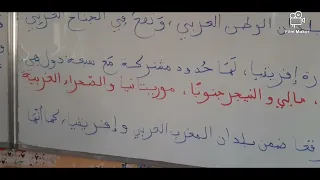 الوطن العربي، وتقع في الجناح الغربي
رة إفريقيا، لها حدود مشتركة مع سبعة دول هي
، مالي والنيجر جنوبًا، موريتانيا والصحراء الغربية
قعا ضمن بلدان المغرب العربي وإفريقيا، كما أنها
Film Maker